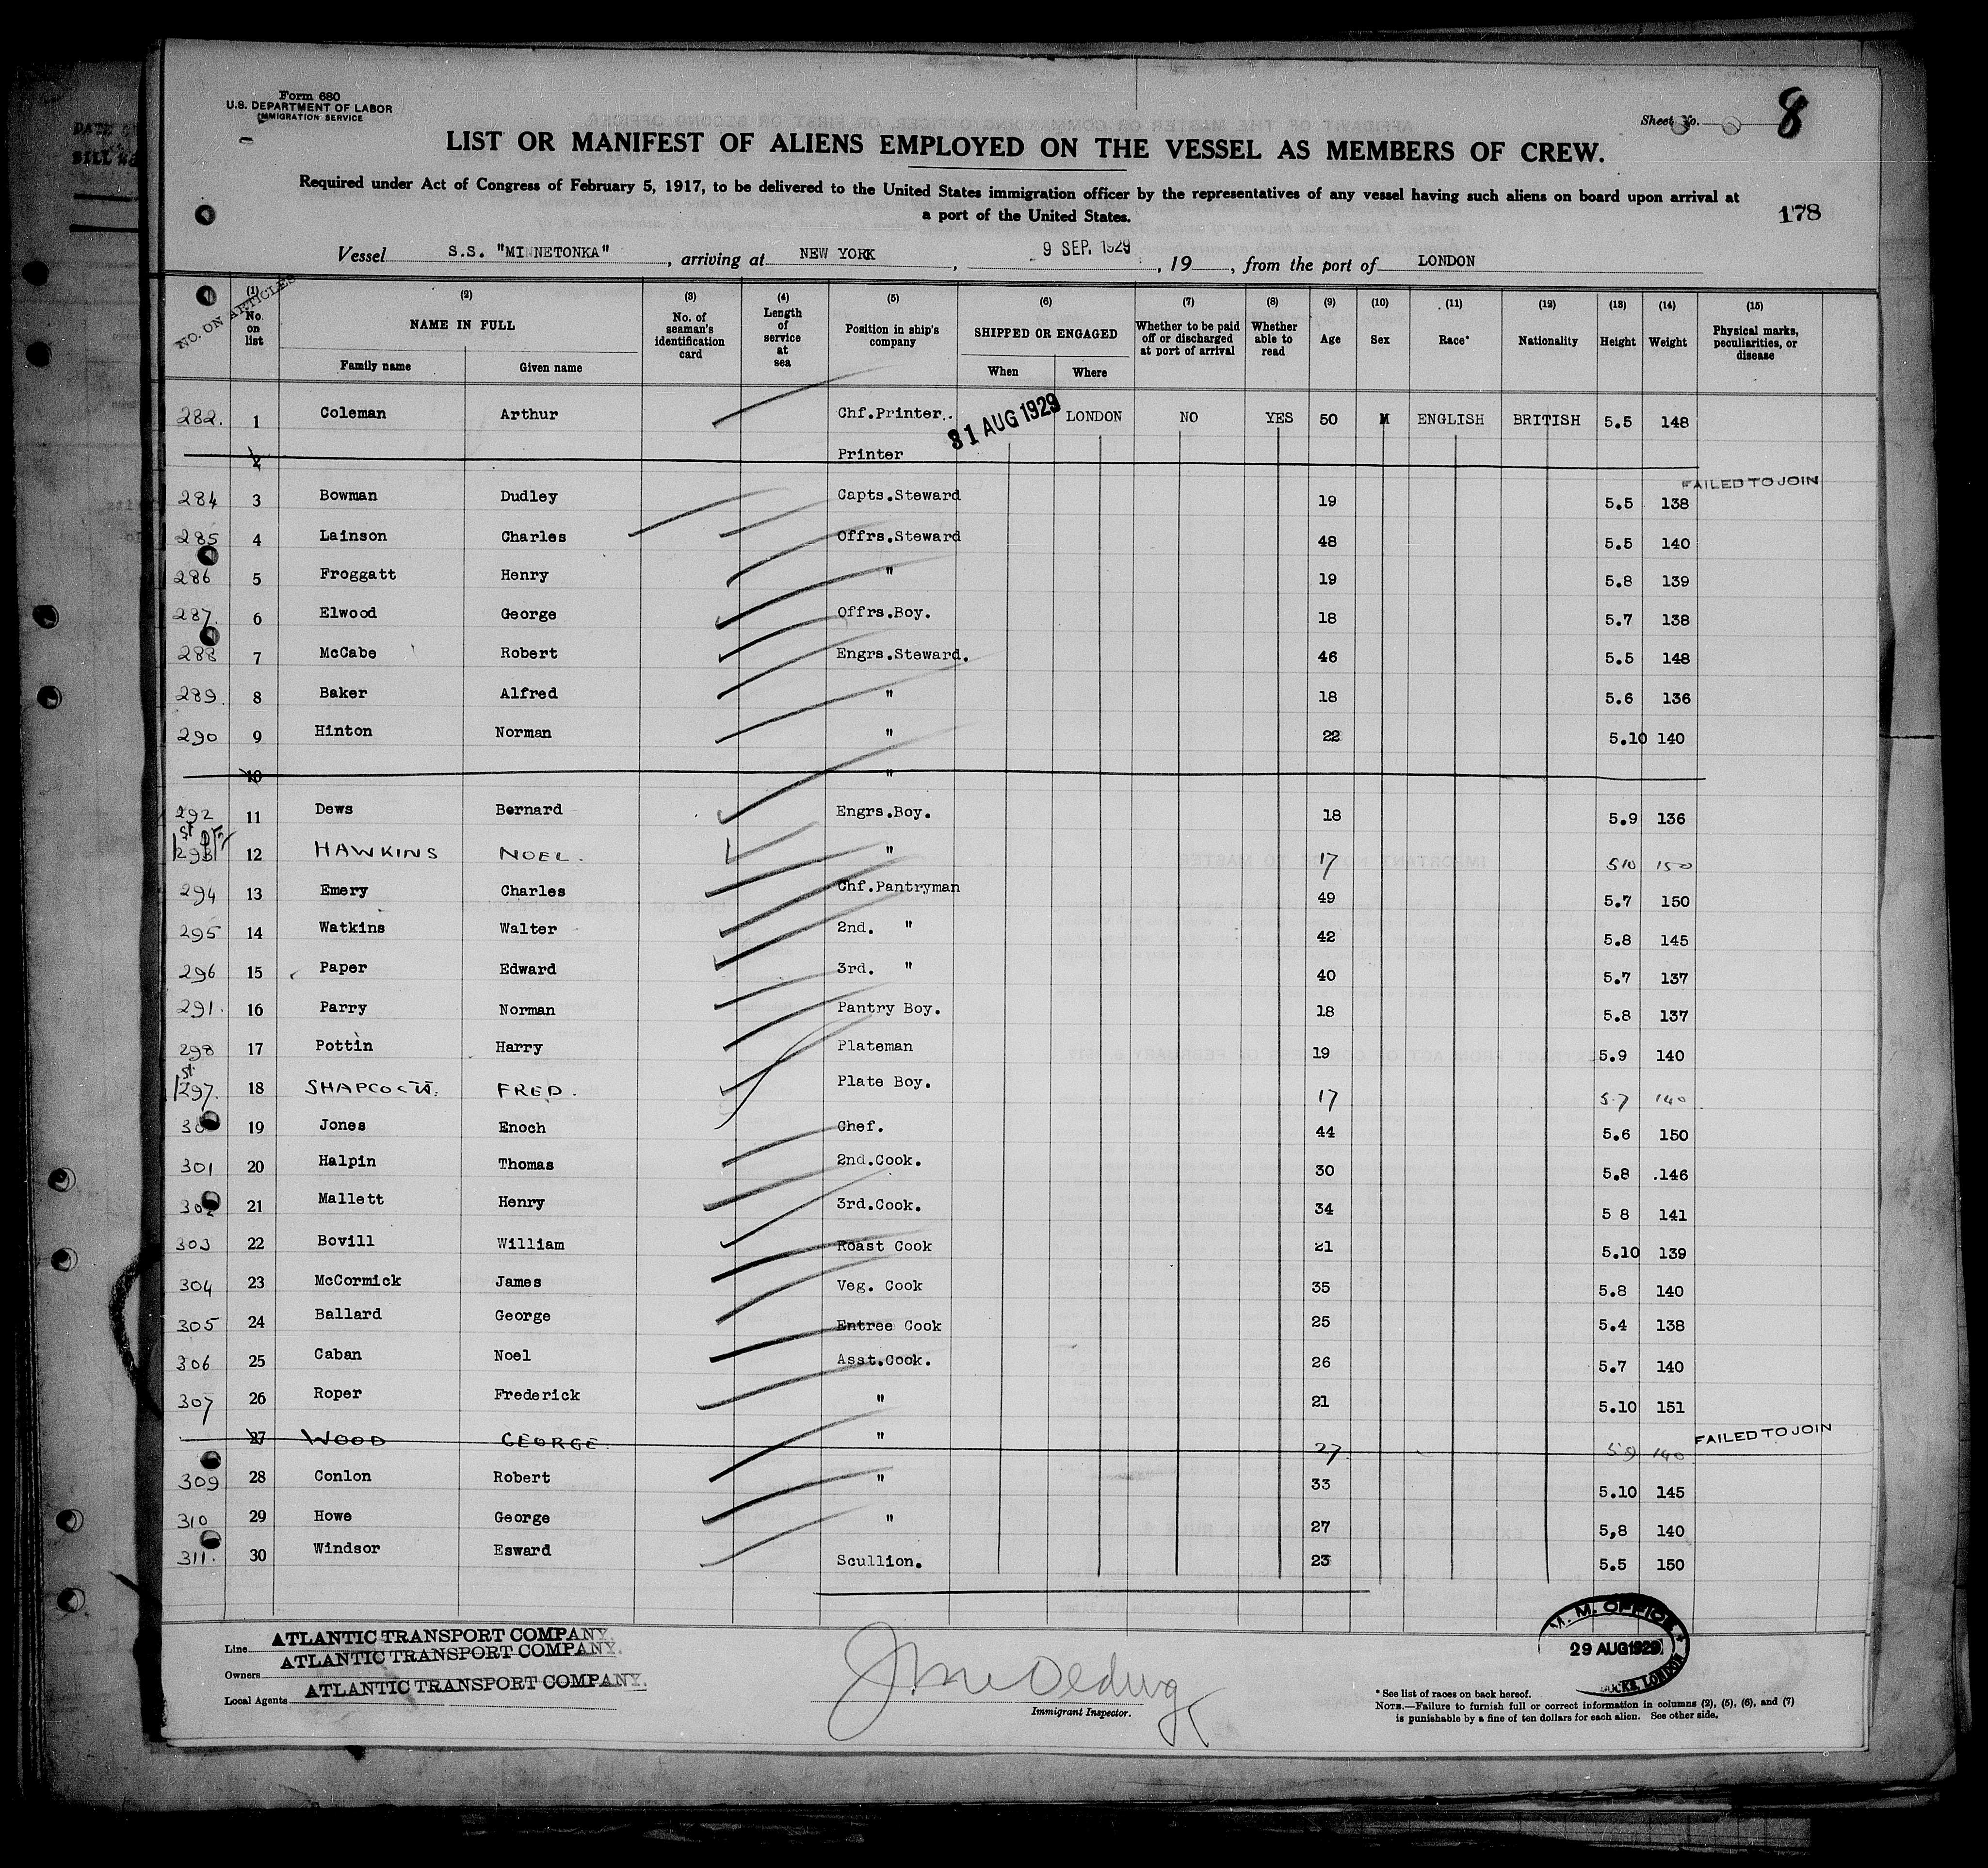 Form 680
U.S. DEPARTMENT OF LABOR
IMMIGRATION SERVICE
Sheet No. 8
LIST OR MANIFEST OF ALIENS EMPLOYED ON THE VESSEL AS MEMBERS OF CREW.
Required under Act of Congress of February 5, 1917, to be delivered to the United States immigration officer by the representatives of any vessel having such aliens on board upon arrival at
a port of the United States.
178
Vessel S.S. "MINNETONKA", arriving at NEW YORK, 9 SEP. 1929, 19, from the port of LONDON
NO. ON ARTICLES (1) No. on list (2) NAME IN FULL Family name Given name (3) No. of seaman's identification card (4) Length of service at sea (5) Position in ship's company (6) SHIPPED OR ENGAGED When Where (7) Whether to be paid off or discharged at port of arrival (8) Whether able to read (9) Age (10) Sex (11) Race* (12) Nationality (13) Height (14) Weight (15) Physical marks, peculiarities, or disease
282. 1 Coleman Arthur Chf.Printer.. 31 AUG 1929 LONDON NO YES 50 M ENGLISH BRITISH 5.5 148
2 Printer
284 3 Bowman Dudley Capts.Steward 19 5.5 138 FAILED TO JOIN
285 4 Lainson Charles Offrs.Steward 48 5.5 140
286 5 Froggatt Henry " 19 5.8 139
287. 6 Elwood George Offrs.Boy. 18 5.7 138
288 7 McCabe Robert Engrs.Steward. 46 5.5 148
289. 8 Baker Alfred " 18 5.6 136
290 9 Hinton Norman " 22 5.10 140
10 "
292 11 Dews Bernard Engrs.Boy. 18 5.9 136
1st 293 12 HAWKINS NOEL. " 17 510 150
294 13 Emery Charles Chf.Pantryman 49 5.7 150
295 14 Watkins Walter 2nd. " 42 5.8 145
296 15 Paper Edward 3rd. " 40 5.7 137
291. 16 Parry Norman Pantry Boy. 18 5.8 137
298 17 Pottin Harry Plateman 19 5.9 140
1st 297. 18 FRED. Plate Boy. 17 5.7 140
19 Jones Enoch Chef. 44 5.6 150
301 20 Halpin Thomas 2nd.Cook. 30 5.8 .146
302 21 Mallett Henry 3rd.Cook. 34 5 8 141
303 22 Bovill William Roast Cook 21 5.10 139
304 23 McCormick James Veg. Cook 35 5.8 140
305 24 Ballard George Entree Cook 25 5.4 138
306 25 Caban Noel Asst.Cook. 26 5.7 140
307 26 Roper Frederick " 21 5.10 151
27 WOOD GEORGE. " 27 5 9 140 FAILED TO JOIN
309 28 Conlon Robert " 33 5.10 145
310 29 Howe George " 27 5,8 140
311. 30 Windsor Esward Scullion. 23 5.5 150
Line ATLANTIC TRANSPORT COMPANY.
Owners ATLANTIC TRANSPORT COMPANY.
Local Agents ATLANTIC TRANSPORT COMPANY.
Immigrant Inspector.
M. M. OFFICE
29 AUG 1929
DOCKS, LONDON
* See list of races on back hereof.
NOTE.—Failure to furnish full or correct information in columns (2), (5), (6), and (7)
is punishable by a fine of ten dollars for each alien. See other side.